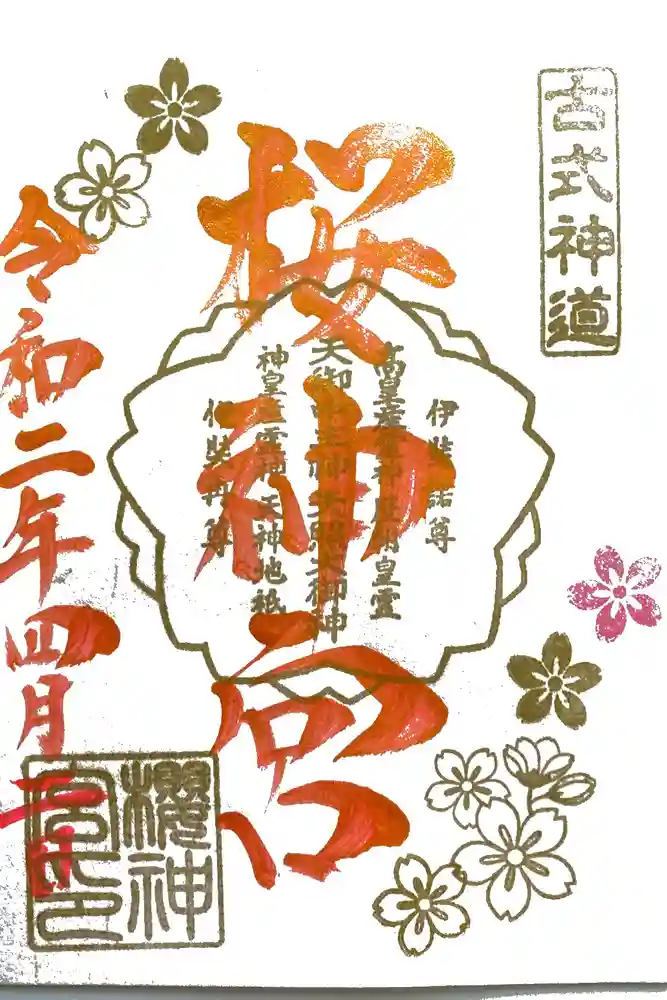 古式神道
伊弉諾尊
高皇産霊神歴朝皇霊
天御中主神天照大御神
神皇産霊神天神地祇
伊弉冉尊
桜神宮
令和二年四月
櫻神
宮之印